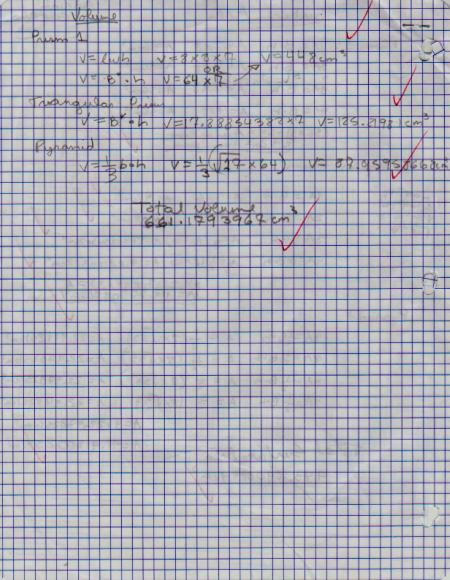 Volume
Prism 1
V = lwh V = 8 x 8 x 7 V = 448 cm³
OR
V = B • h V = 64 x 7
Triangular Prism
V = B • h V = 17.88854382 x 7 V = 125.2198 cm³
Pyramid
V = 1/3 b•h V = 1/3 (√17 x 64) V =
Total Volume
661.1793967 cm³